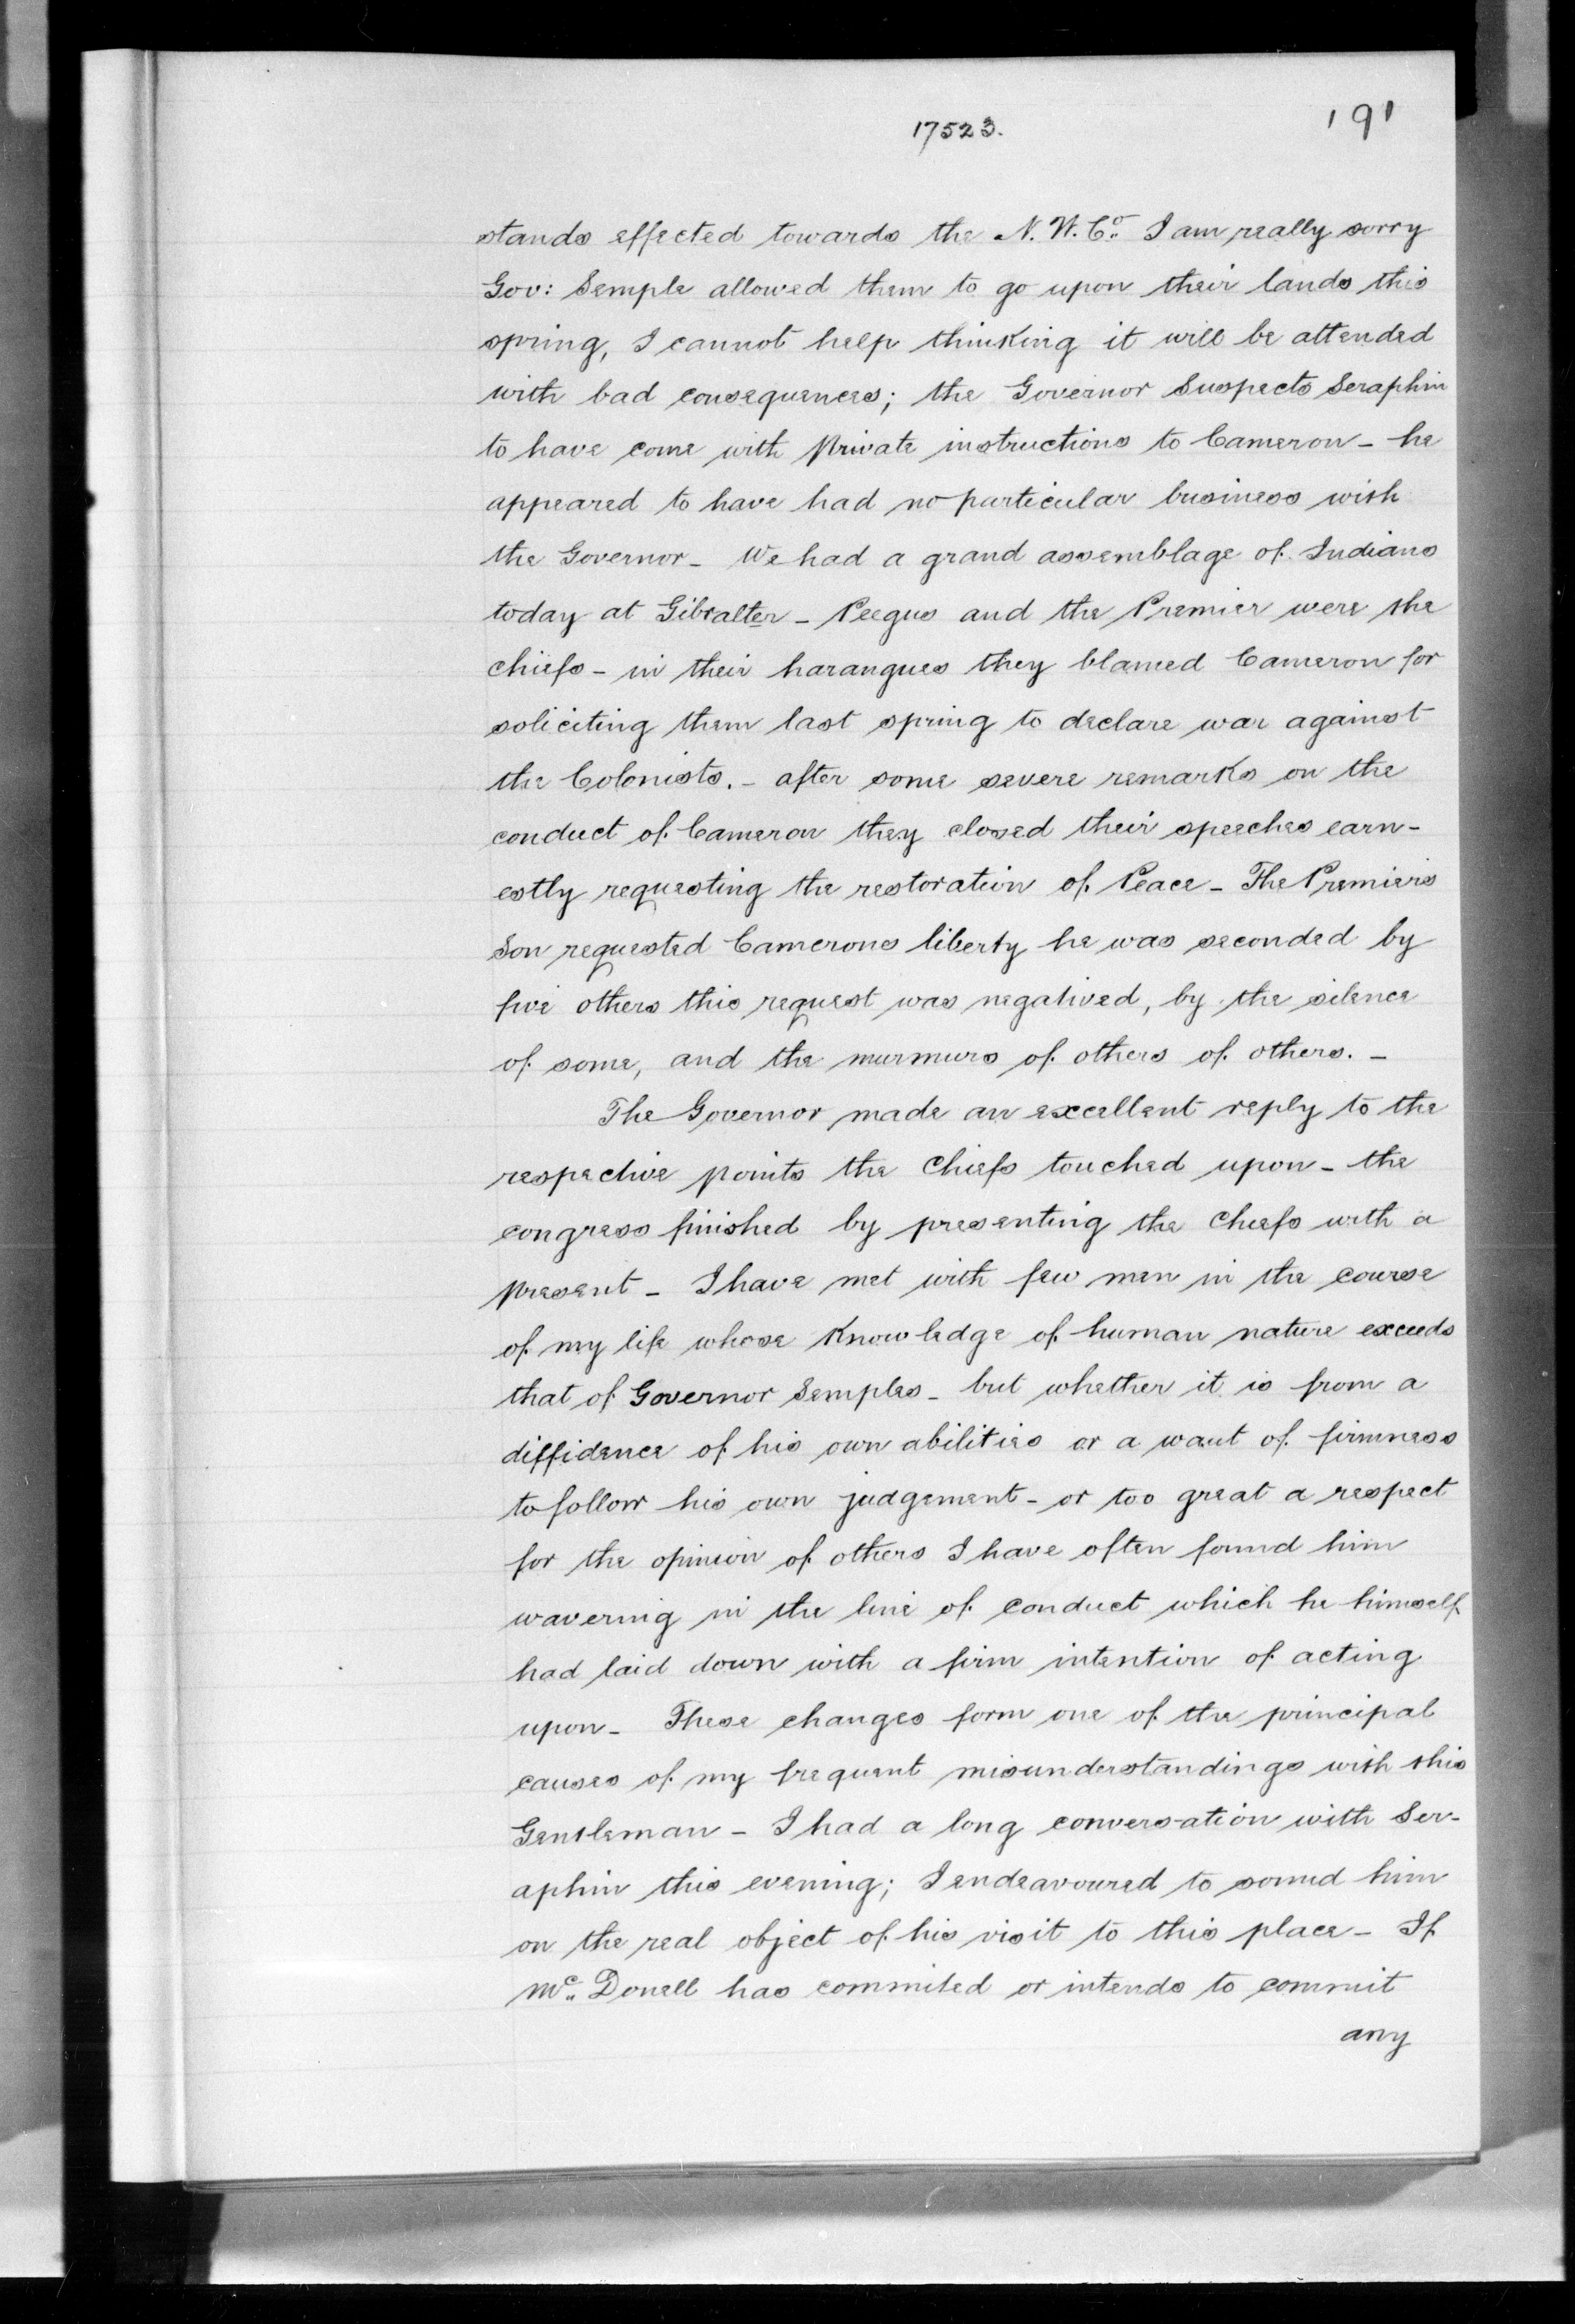 17523.
191
stands effected towards the N. W. Co. I am really sorry
Gov: Semple allowed them to go upon their lands this
spring, I cannot help thinking it will be attended
with bad consequences; the Governor Suspects Seraphin
to have come with private instructions to Cameron - he
appeared to have had no particular business with
the Governor - We had a grand assemblage of Indians
today at Gibralter - Peegus and the Premier were the
chiefs - in their harangues they blamed Cameron for
soliciting them last spring to declare war against
the Colonists. - after some severe remarks on the
conduct of Cameron they closed their speeches earn-
estly requesting the restoration of Peace - The Premiers
Son requested Camerons liberty he was seconded by
five others this request was negatived, by the silence
of some, and the murmurs of others of others. -
The Governor made an excellent reply to the
respective points the Chiefs touched upon - the
congress finished by presenting the Chiefs with a
present - I have met with few men in the course
of my life whose Knowledge of human nature exceeds
that of Governor Semples - but whether it is from a
diffidence of his own abilities or a want of firmness
to follow his own judgement - or too great a respect
for the opinion of others I have often found him
wavering in the line of conduct which he himself
had laid down with a firm intention of acting
upon - These changes form one of the principal
causes of my frequent misunderstandings with this
Gentleman - I had a long conversation with Ser-
aphin this evening; I endeavoured to sound him
on the real object of his visit to this place - If
Mc. Donell has commited or intends to commit
any